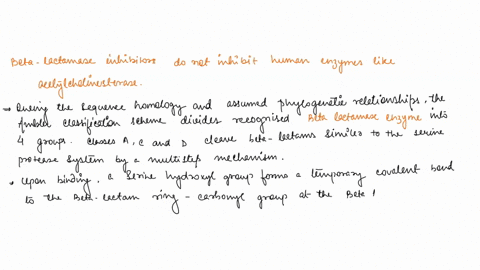 Beta-lactamase inhibitors do not inhibit human enzymes like
acetylcholinesterase.
→ During the sequence homology and assumed phylogenetic relationships, the
Ambler classification scheme divides recognised Beta lactamase enzyme into
4 groups. classes A, C and D cleave beta-lactams similar to the serine
protease system by a multistep mechanism.
• Upon binding, a serine hydroxyl group forms a temporary covalent bond
to the Beta-lactam ring - carbonyl group at the Beta l